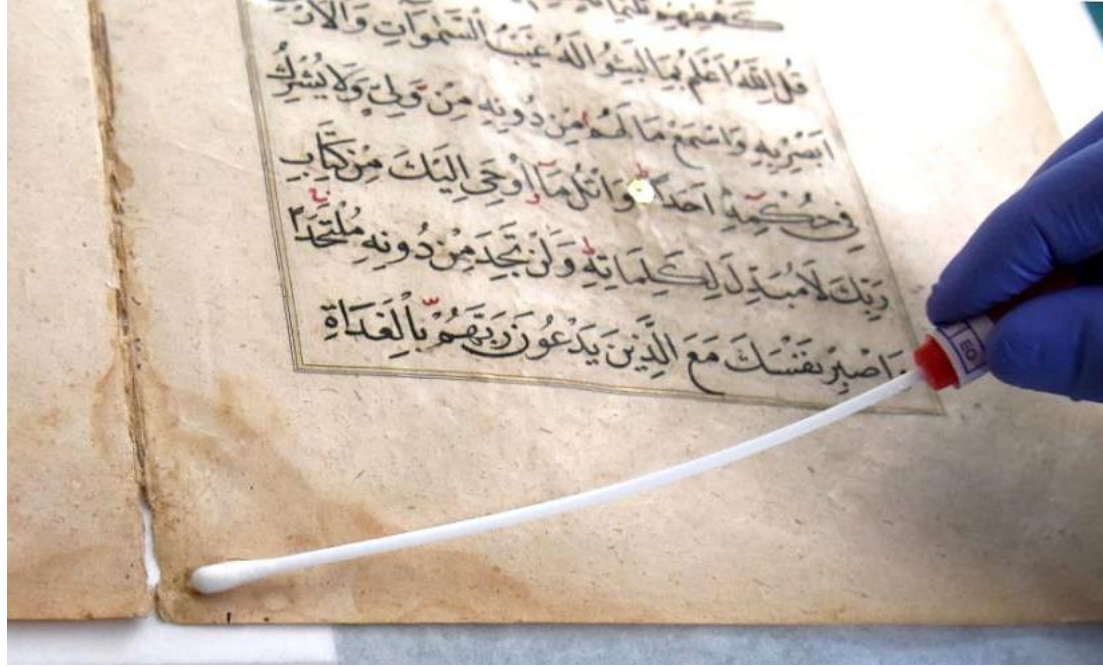 كَهْفِهِمْ
قُلِ اللَّهُ اَعْلَمُ بِمَا لَبِثُوا لَهُ غَيْبُ السَّمٰوَاتِ وَالْاَرْ
اَبْصِرْ بِهِ وَاسْمِعْ مَا لَهُمْ مِنْ دُونِهِ مِنْ وَلِيٍّ وَلَا يُشْرِكُ
فِي حُكْمِهِ اَحَدًا وَاتْلُ مَا اُوحِيَ اِلَيْكَ مِنْ كِتَابِ
رَبِّكَ لَا مُبَدِّلَ لِكَلِمَاتِهِ وَلَنْ تَجِدَ مِنْ دُونِهِ مُلْتَحَدًا
وَاصْبِرْ نَفْسَكَ مَعَ الَّذِينَ يَدْعُونَ رَبَّهُمْ بِالْغَدَاةِ